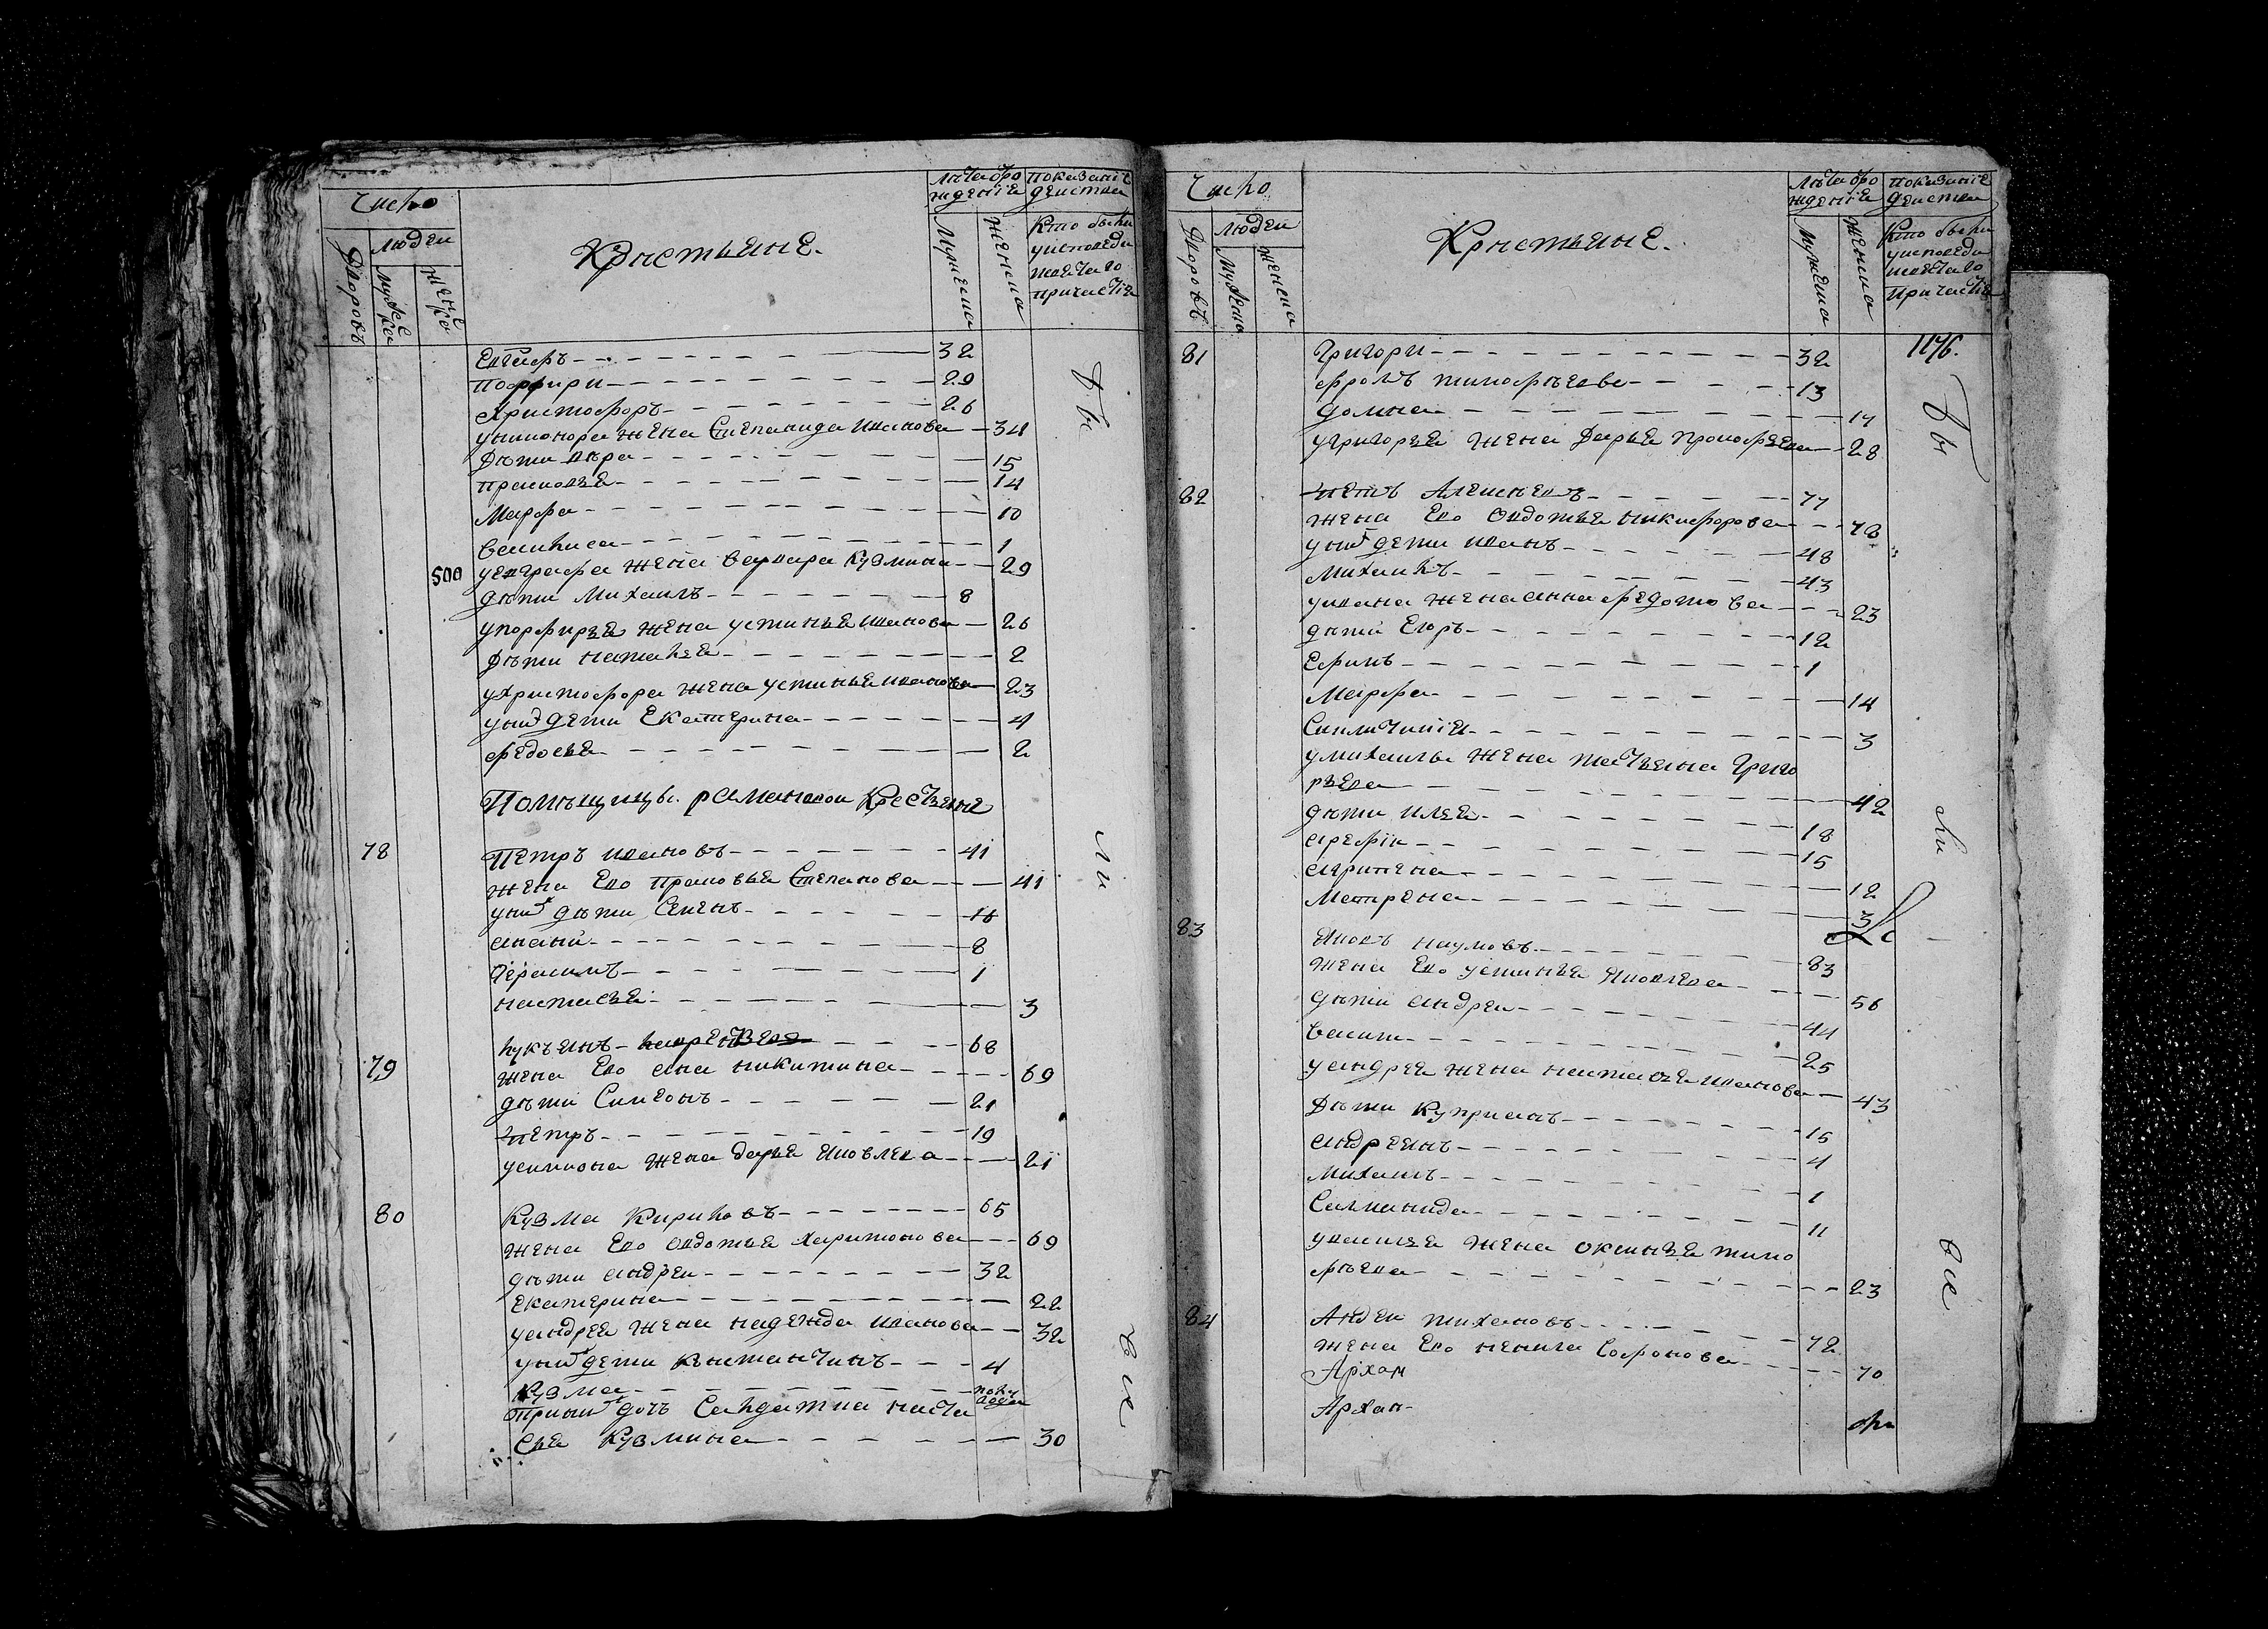 Число
Дворовъ
людеи
мужеска
женска
Крестьяне.
Лѣта рождениЕ
Мужеска
женска
показание деиства
Кто были
уисповеди
исвятаго
причастиЯ
Евграфъ 32
порфири 29
Христофоръ 26
жена Степанида иванова 34
Дѣти вѣра 15
прасковья 14
Марфа 10
василиса 1
500 уевграфа жена варвара Кузмина 29
дѣти Михаилъ 8
упорфирья жена устинья иванова 26
Дѣти наталья 2
ухристофора жена устинья иванова 23
уних дети Екатерина 4
федосья 2
Помѣщицы Крестьяне
78 Петръ ивановъ 41
жена Ево прасковья Степанова 41
уних дѣти Семенъ
ананий 8
герасимъ 1
настасья 3
79 лукьянъ 68
жена Ево ана никитина 69
дѣти Симеонъ 21
Петръ 19
усимиона жена дарья яковлева 21
80 Кузма Кириловъ 65
жена Ево овдотья харитонова 69
дѣти андреи 32
екатерина 22
уандрея жена надежда иванова 32
уних дети 4
Кузма полугода
приних дочь Салдатка наста
сья Кузмина 30
бы
ли
вси
Число
Дворовъ
людеи
мужеска
женска
Крестьяне.
Лѣта рождениЕ
мужеска
женска
показание деиства
Кто были
уисповеди
исвятаго
причастия
1196.
81 Григори 32
фролъ тимофѣевъ 13
домна 17
угригорья жена Дарья прокофьева 28
82 Алексѣевъ 77
жена Ево Овдотья никифорова 78
уних дети иванъ 48
Михаилъ 43
уивана жена анна федотова 23
дѣти Егоръ 12
Ефимъ 1
Марфа 14
3
умихаила жена татьяна григо
рьева 42
дѣти илья 18
арефiи 15
агрипена 12
Матрена 3
83 яковъ наумовъ 83
жена Ево устинья яковлева 56
дѣти андреи 44
васили 25
уандрея жена настасья иванова 43
Дѣти Куприанъ 15
андреянъ 4
михаилъ 1
11
увасилья жена оксинья тимо
фѣева 23
84 тихановъ 72
жена Ево ненила Софонова 70
Архап
Архап
бы
ли
вси